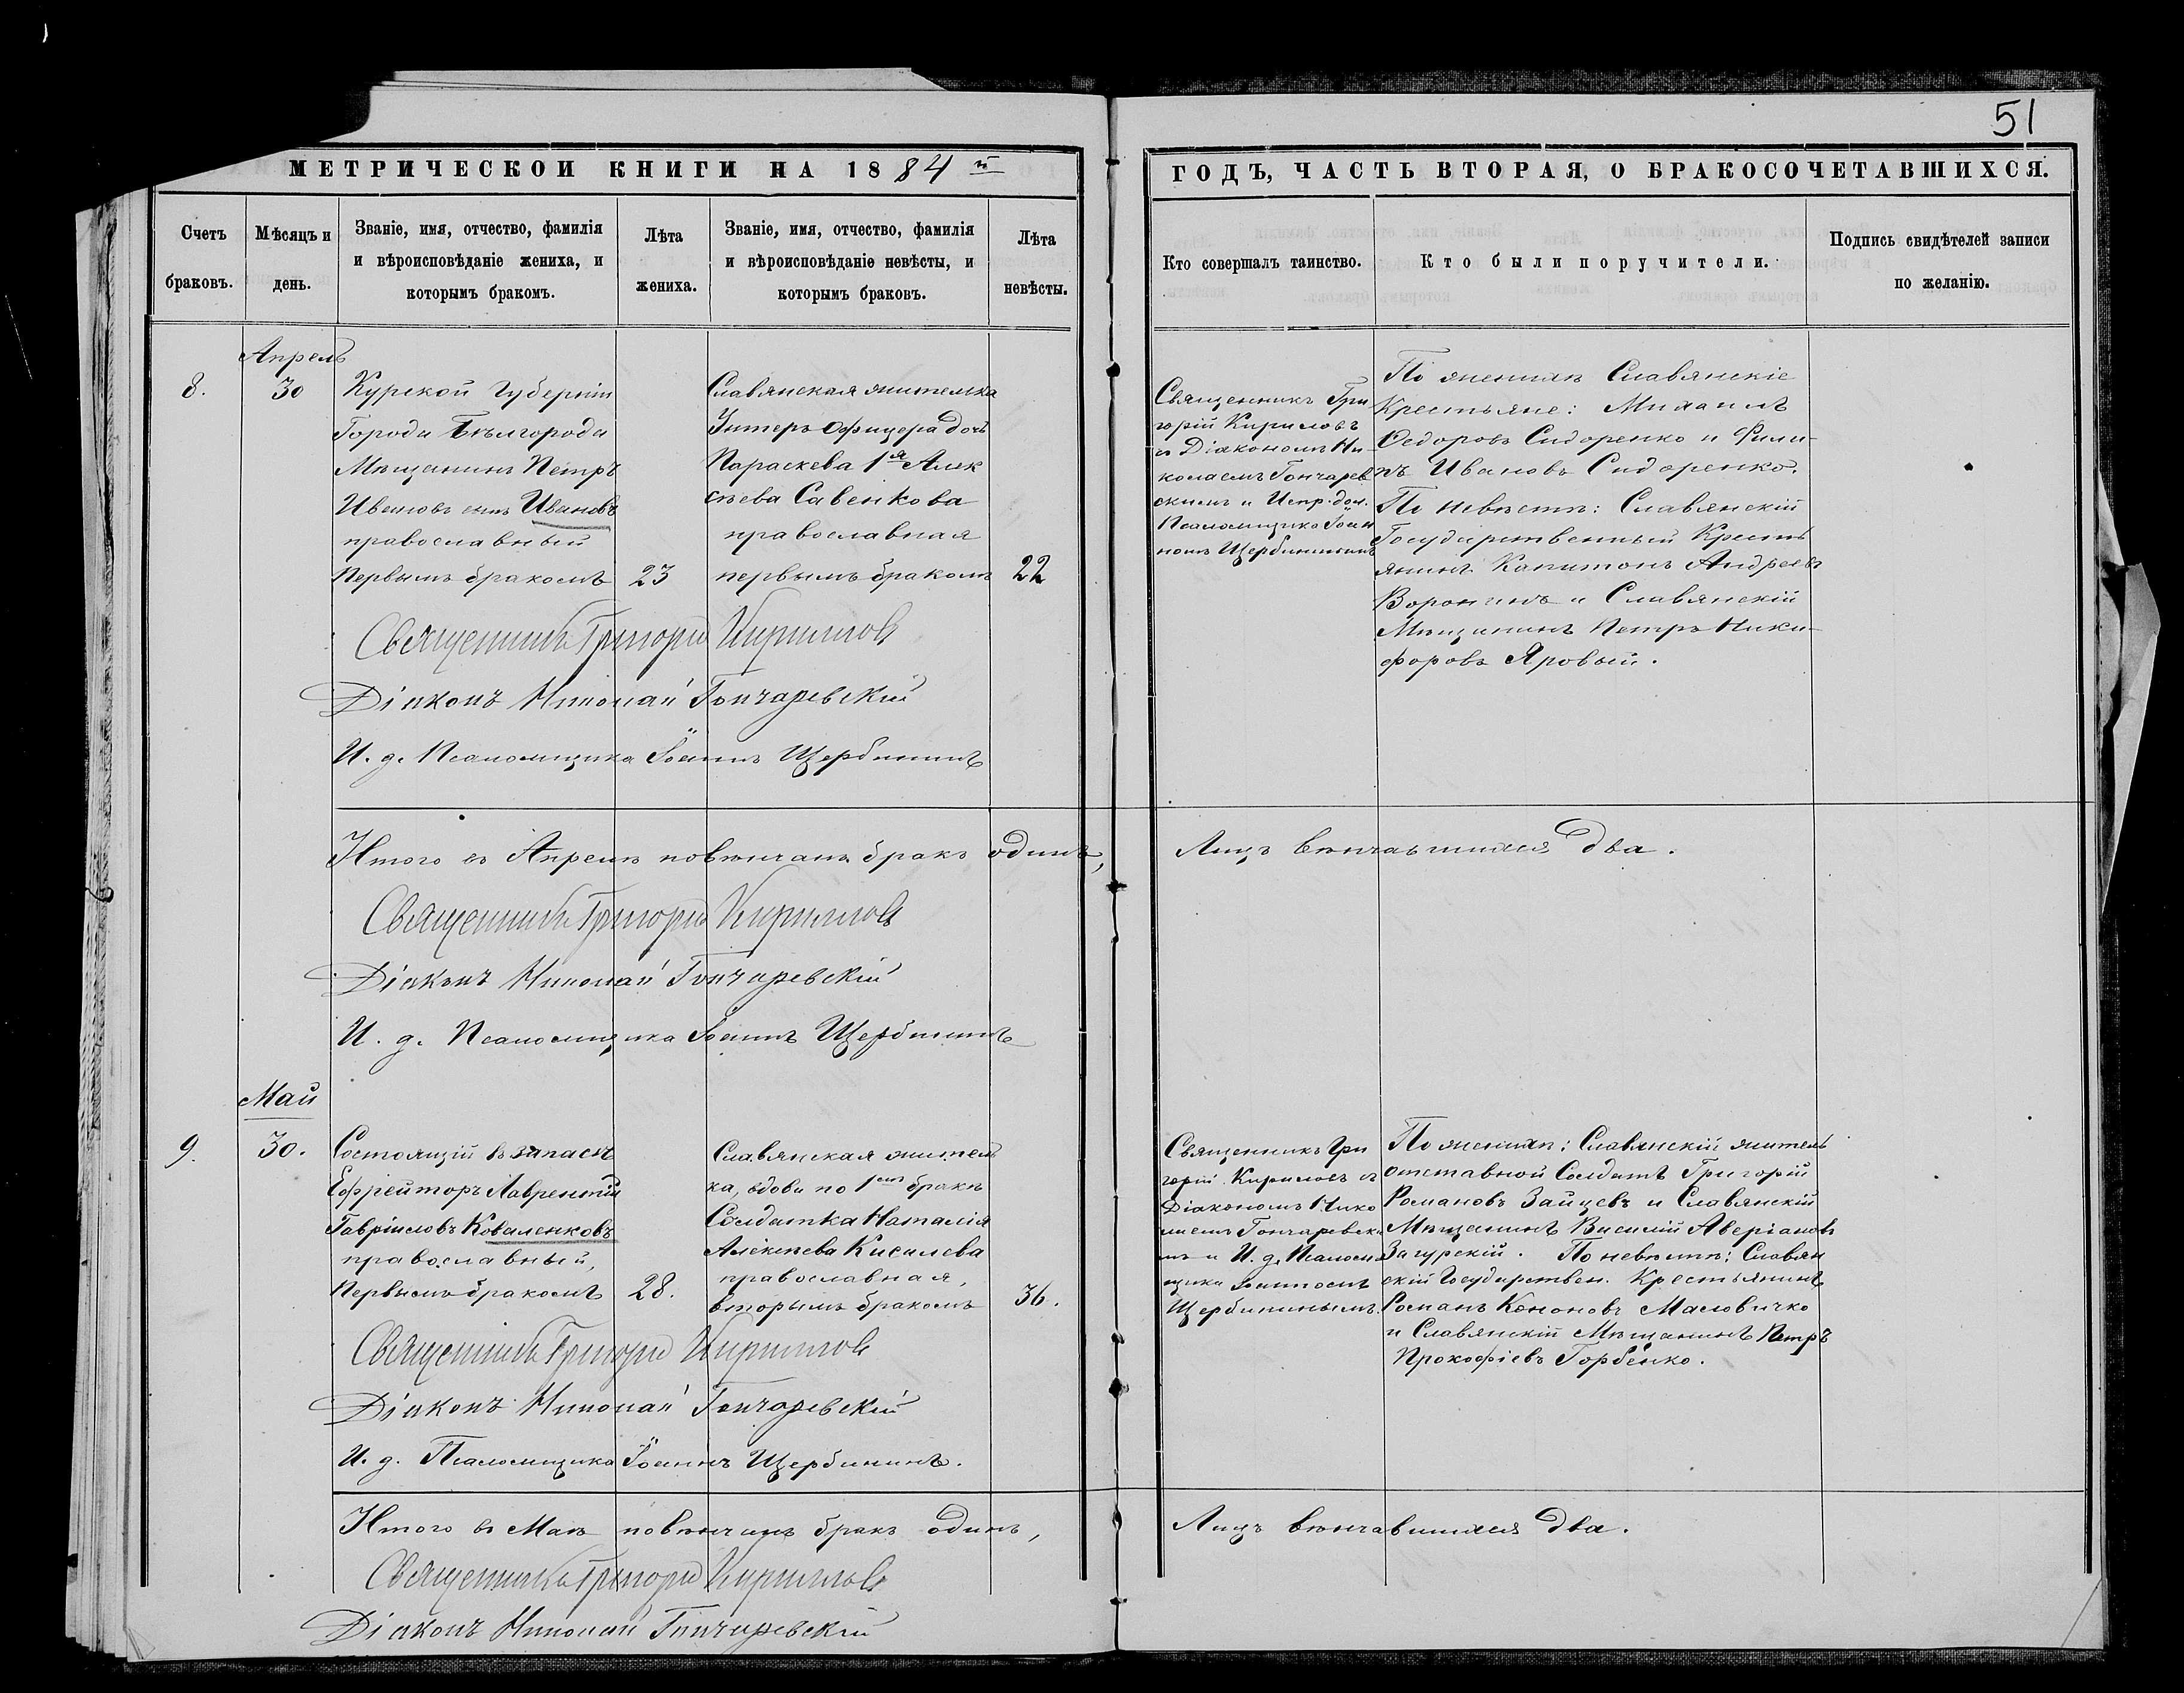 51
МЕТРИЧЕСКОЙ КНИГИ НА 1884 й
ГОДЪ, ЧАСТЬ ВТОРАЯ, О БРАКОСОЧЕТАВШИХСЯ.
Счетъ
браковъ.
Мѣсяцъ и
день.
Званіе, имя, отчество, фамилія
и вѣроисповѣданіе жениха, и
которымъ бракомъ.
Лѣта
жениха.
Званіе, имя, отчество, фамилія
и вѣроисповѣданіе невѣсты, и
которымъ браковъ.
Лѣта
невѣсты.
Кто совершалъ таинство.
Кто были поручители.
Подпись свидѣтелей записи
по желанію.
Апрель
8.
30
Курской Губерніи
Города Бѣлгорода
Мѣщанинъ Петръ
Ивановъ сынъ Ивановъ
православный
Первымъ бракомъ
23
Славянская жителька
Унтеръ Офицера дочь
Параскева 1я Алек
сѣева Савенкова
православная
первымъ бракомъ
22
Священникъ Гри
горій Кириловъ
съ Діакономъ Ни-
колаемъ Гончарев
скимъ и Испр. дол.
Псаломщика Іоан
номъ Щербининымъ
По женихѣ Славянскіе
Крестьяне: Михаилъ
Ѳедоровъ Сидоренко и Фили-
пъ Ивановъ Сидоренко.
По невѣстѣ: Славянскій
Государственный Кресть
янинъ Капитонъ Андреевъ
Воронинъ и Славянскій
Мѣщанинъ Петръ Ники-
форовъ Яровый.
Священникъ Григорій Кириловъ
Діаконъ Николай Гончаревскій
И. д. Псаломщика Іоаннъ Щербининъ
Итого въ Апрелѣ повѣнчанъ бракъ одинъ,
Лицъ вѣнчавшихся два.
Священникъ Григорій Кириловъ
Діаконъ Николай Гончаревскій
И. д. Псаломщика Іоаннъ Щербининъ
Май
9.
30.
Состоящій въ запасѣ
Ефрейторъ Лаврентій
Гавріиловъ Коваленковъ
православный,
Первымъ бракомъ
28.
Славянская житель
ка, вдова по 1мъ бракѣ
Солдатка Наталія
Алексѣева Кисилева
православная,
вторымъ бракомъ
36.
Священникъ Гри
горій Кириловъ съ
Діакономъ Нико
лаемъ Гончаревски
мъ и И. д. Псалом
щика Іоанномъ
Щербининымъ.
По женихѣ: Славянскій житель
отставной Солдатъ Григорій
Романовъ Зайцевъ и Славянскій
Мѣщанинъ Василій Аверіановъ
Загурскій. По невѣстѣ: Славян
скій Государствен. Крестьянинъ
Романъ Кононовъ Масловичко
и Славянскій Мѣщанинъ Петръ
Прокофіевъ Горбенко.
Священникъ Григорій Кириловъ
Діаконъ Николай Гончаревскій
И. д. Псаломщика Іоаннъ Щербининъ.
Итого въ Маѣ повѣнчанъ бракъ одинъ,
Лицъ вѣнчавшихся два.
Священникъ Григорій Кириловъ
Діаконъ Николай Гончаревскій